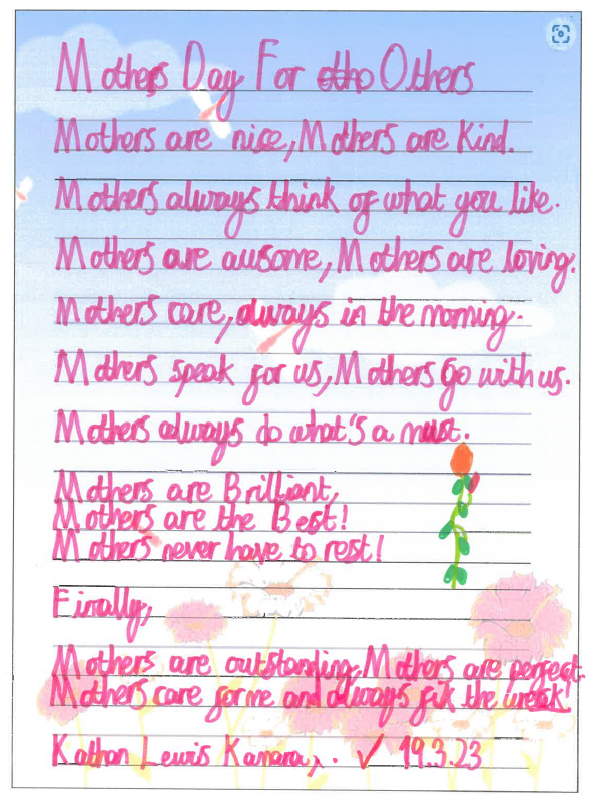 Mothers Day For otho Others
Mothers are nice, Mothers are Kind.
Mothers always think of what you like.
Mothers are awsome, Mothers are loving.
Mothers care, always in the morning.
Mothers speak for us, Mothers Go with us.
Mothers always do what's a must.
Mothers are Brilliant,
Mothers are the Best!
Mothers never have to rest!
Finally,
Mothers are outstanding, Mothers are perfect.
Mothers care for me and always fix the wreck!
Kathan Lewis Kamara, . ✓ 19.3.23